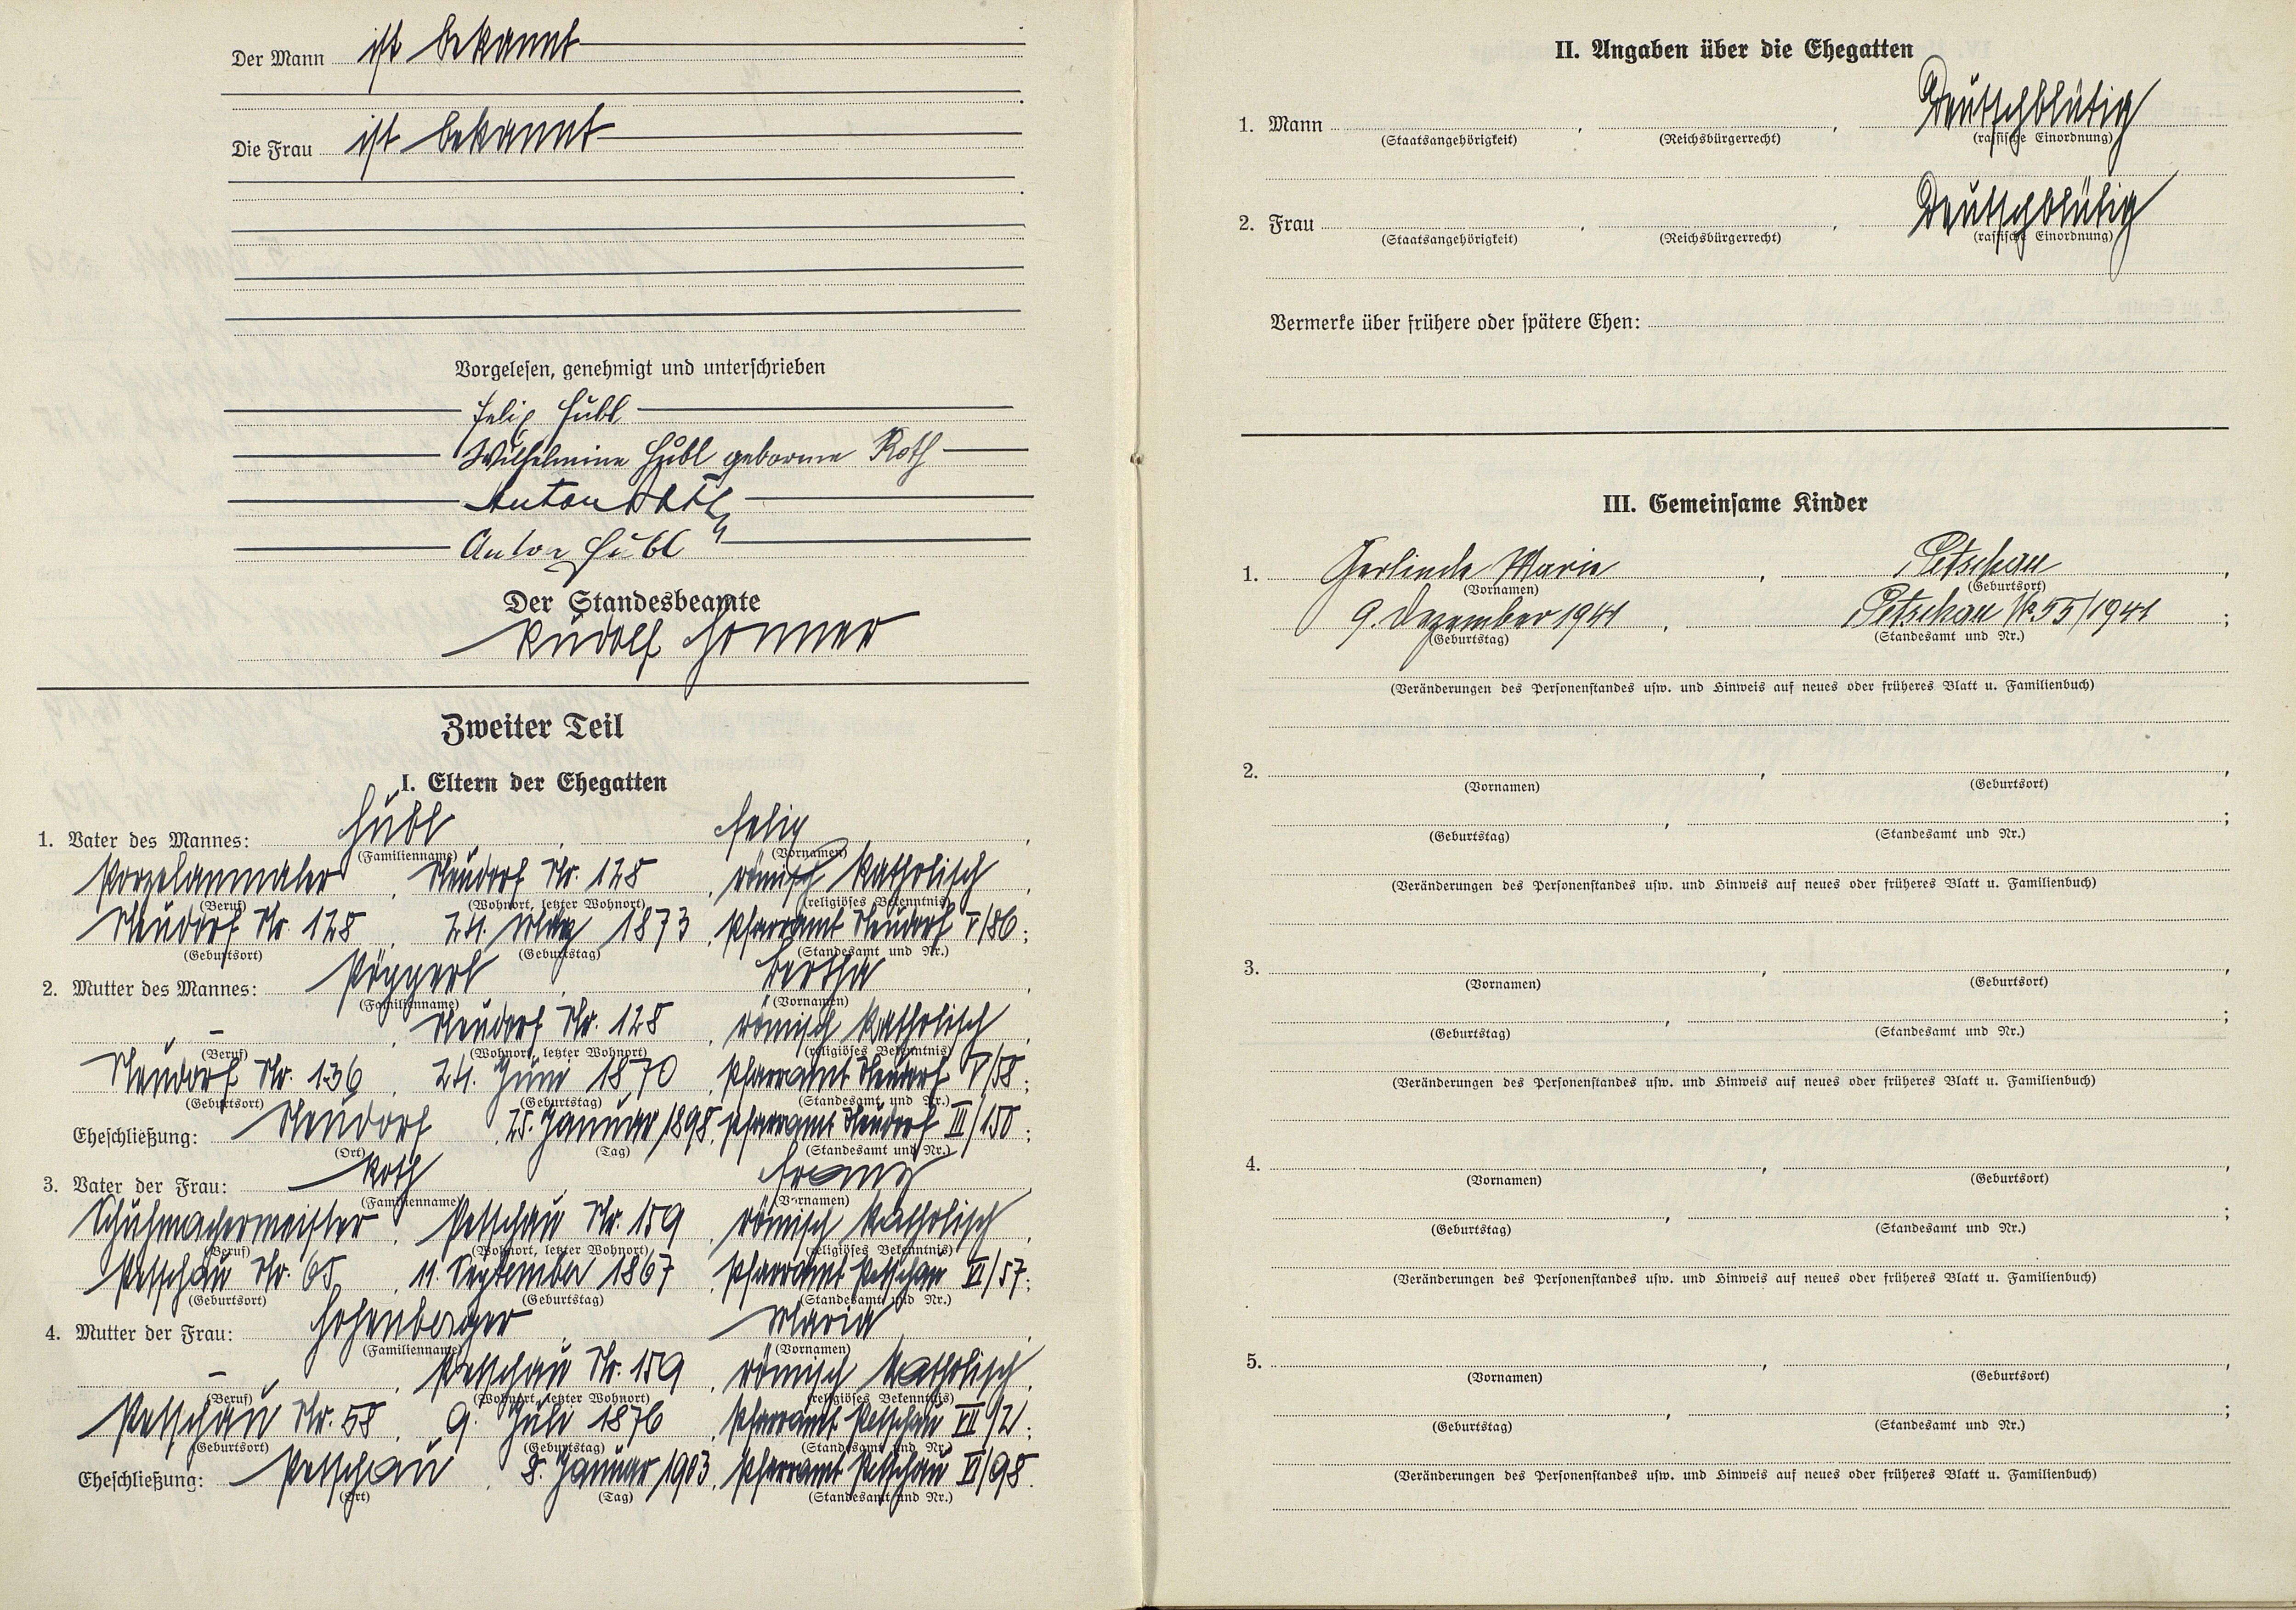 Der Mann ist bekannt
Die Frau ist bekannt
Vorgelesen, genehmigt und unterschrieben
Felix Hübl
Wilhelmine Hübl geborene Roth
Anton
Anton Hübl
Der Standesbeamte
Rudolf
Zweiter Teil
I. Eltern der Ehegatten
1. Vater des Mannes: Hübl, Felix,
(Familienname) (Vornamen)
Porzelanmaler, Neudorf Nr. 128, römisch katholisch,
(Beruf) (Wohnort, letzter Wohnort) (religiöses Bekenntnis)
Neudorf Nr. 128, 24. März 1873, Pfarramt Neudorf V/86;
(Geburtsort) (Geburtstag) (Standesamt und Nr.)
2. Mutter des Mannes: Pöpperl, Bertha,
(Familienname) (Vornamen)
–, Neudorf Nr. 128, römisch katholisch,
(Beruf) (Wohnort, letzter Wohnort) (religiöses Bekenntnis)
Neudorf Nr. 136, 24. Juni 1870, Pfarramt Neudorf V/58;
(Geburtsort) (Geburtstag) (Standesamt und Nr.)
Eheschließung: Neudorf, 25. Januar 1898, Pfarramt Neudorf III/150;
(Ort) (Tag) (Standesamt und Nr.)
3. Vater der Frau: Roth, Franz,
(Familienname) (Vornamen)
Schuhmachermeister, Petschau Nr. 159, römisch katholisch,
(Beruf) (Wohnort, letzter Wohnort) (religiöses Bekenntnis)
Petschau Nr. 65, 11. September 1867, Pfarramt Petschau VI/57;
(Geburtsort) (Geburtstag) (Standesamt und Nr.)
4. Mutter der Frau: Hohenberger, Maria,
(Familienname) (Vornamen)
–, Petschau Nr. 159, römisch katholisch,
(Beruf) (Wohnort, letzter Wohnort) (religiöses Bekenntnis)
Petschau Nr. 58, 9. Juli 1876, Pfarramt Petschau VII/21;
(Geburtsort) (Geburtstag) (Standesamt und Nr.)
Eheschließung: Petschau, 8. Januar 1903, Pfarramt Petschau VI/98.
(Ort) (Tag) (Standesamt und Nr.)
II. Angaben über die Ehegatten
1. Mann , , Deutschblütig
(Staatsangehörigkeit) (Reichsbürgerrecht) (rassische Einordnung)
2. Frau , , Deutschblütig
(Staatsangehörigkeit) (Reichsbürgerrecht) (rassische Einordnung)
Vermerke über frühere oder spätere Ehen:
III. Gemeinsame Kinder
1. Gerlinde Marie, Petschau,
(Vornamen) (Geburtsort)
9. Dezember 1941, Petschau Nr 55/1941;
(Geburtstag) (Standesamt und Nr.)
(Veränderungen des Personenstandes usw. und Hinweis auf neues oder früheres Blatt u. Familienbuch)
2. , ,
(Vornamen) (Geburtsort)
, ;
(Geburtstag) (Standesamt und Nr.)
(Veränderungen des Personenstandes usw. und Hinweis auf neues oder früheres Blatt u. Familienbuch)
3. , ,
(Vornamen) (Geburtsort)
, ;
(Geburtstag) (Standesamt und Nr.)
(Veränderungen des Personenstandes usw. und Hinweis auf neues oder früheres Blatt u. Familienbuch)
4. , ,
(Vornamen) (Geburtsort)
, ;
(Geburtstag) (Standesamt und Nr.)
(Veränderungen des Personenstandes usw. und Hinweis auf neues oder früheres Blatt u. Familienbuch)
5. , ,
(Vornamen) (Geburtsort)
, ;
(Geburtstag) (Standesamt und Nr.)
(Veränderungen des Personenstandes usw. und Hinweis auf neues oder früheres Blatt u. Familienbuch)